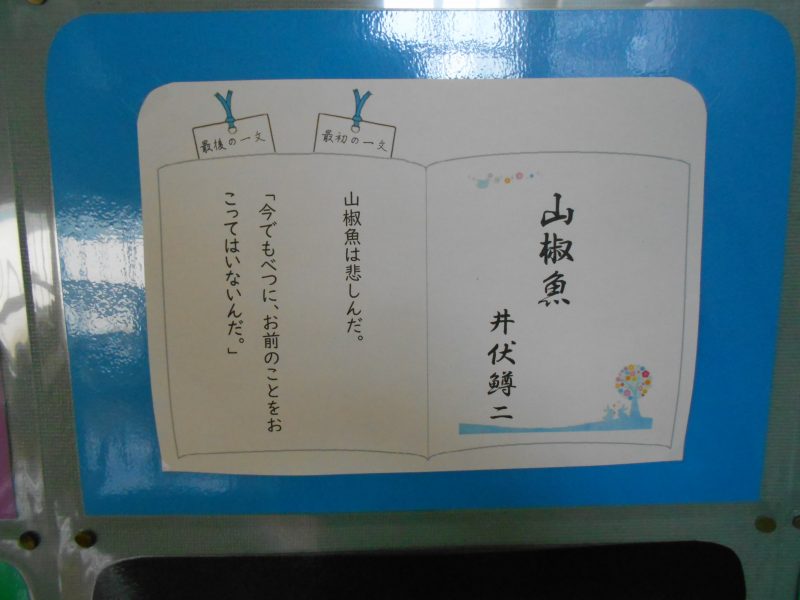 山椒魚
井伏鱒二
最初の一文
山椒魚は悲しんだ。
最後の一文
「今でもべつに、お前のことをお
こってはいないんだ。」